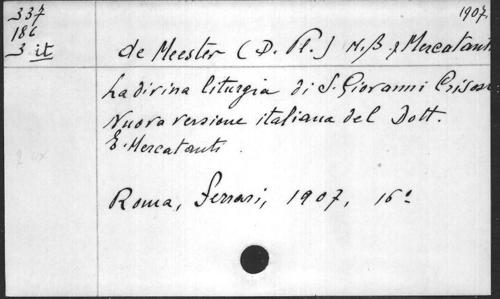 337
186
3 it
1907.
de Meester (D. Pl.) Mercatanti
La divina liturgia di S. Giovanni Crisos
Nuova versione italiana del Dott.
E. Mercatanti.
Roma, Ferrari, 1907, 16°